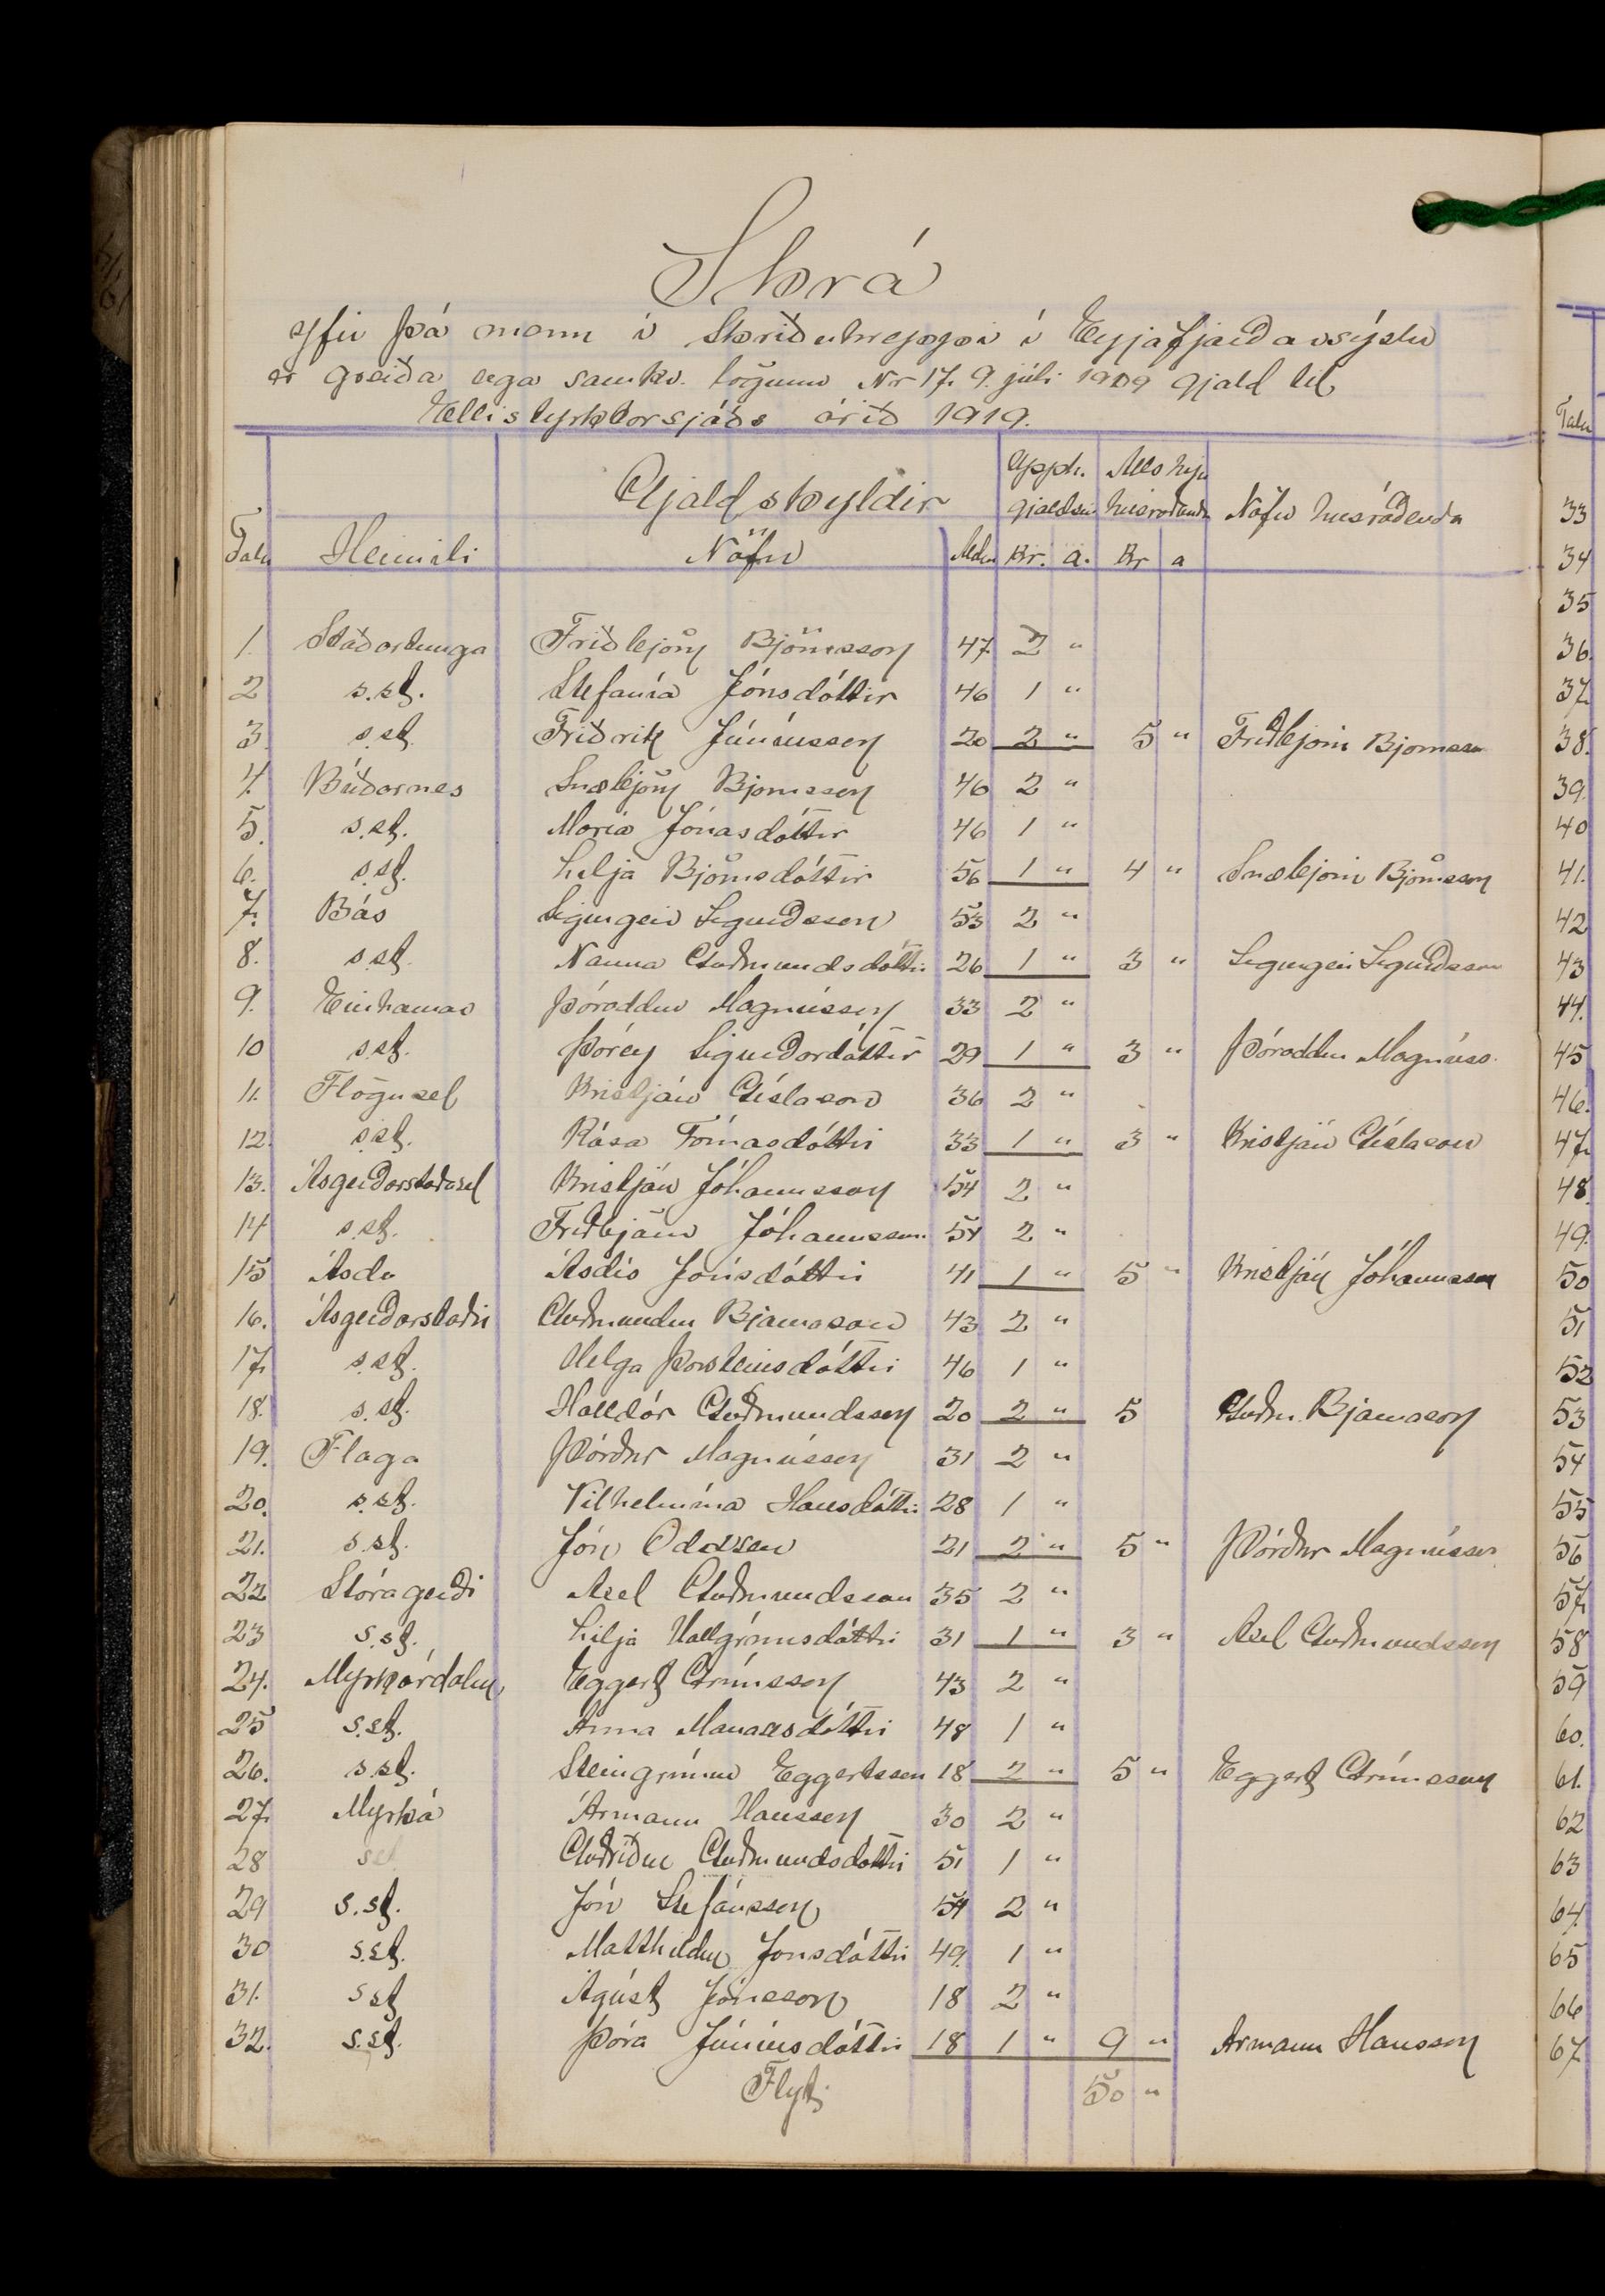 Skrá
yfir þá menn í Skriðuhreppi í Eyjafjarðarsýslu
er greiða eiga samkv. lögum Nr 17. 9. júli 1909 gjald til
Ellistyrktarsjóðs árið 1919.
Gjaldskyldir Upph. gjaldsins Alls hjá húsráðanda Nöfn húsráðenda
Tala Heimili Nöfn Aldur Kr. a. Kr a
1. Staðartunga Friðbjörn Björnsson 47 2 "
2 s.st. Stefanía Jónsdóttir 46 1 "
3. s.st. Friðrik Júníusson 20 2 " 5 " Friðbjörn Björnsson
4. Búðarnes Snæbjörn Björnsson 46 2 "
5. s.st. María Jónasdóttir 46 1 "
6. s.st. Lilja Björnsdóttir 56 1 " 4 " Snæbjörn Björnsson
7. Bás Sigurgeir Sigurðsson 53 2 "
8. s.st. Nanna Guðmundsdóttir 26 1 " 3 " Sigurgeir Sigurðsson
9. Einhamar Þóroddur Magnússon 33 2 "
10 s.st. Þórey Sigurðardóttir 29 1 " 3 " Þóroddur Magnúss.
11. Flögusel Kristján Gíslason 36 2 "
12. s.st. Rósa Tómasdóttir 33 1 " 3 " Kristján Gíslason
13. Ásgerðarstaðasel Kristján Jóhannsson 54 2 "
14 s.st. Friðbjörn Jóhannsson 54 2 "
15 Ásdo Ásdís Jónsdóttir 41 1 " 5 " Kristján Jóhannsson
16. Ásgerðarstaðir Guðmundur Bjarnason 43 2 "
17. s.st. Helga Þorsteinsdóttir 46 1 "
18. s.st. Halldór Guðmundsson 20 2 " 5 Guðm. Bjarnason
19. Flaga Þórður Magnússon 31 2 "
20. s.st. Vilhelmína Hansdóttir 28 1 "
21. s.st. Jón Oddsson 21 2 " 5 " Þórður Magnússon
22 Stóragerði Axel Guðmundsson 35 2 "
23 s.st. Lilja Hallgrímsdóttir 31 1 " 3 " Axel Guðmundsson
24. Myrkárdalur Eggert Grímsson 43 2 "
25 s.st. Anna Manasesdóttir 48 1 "
26. s.st. Steingrímur Eggertsson 18 2 " 5 " Eggert Grímsson
27. Myrká Ármann Hansson 30 2 "
28 s.st. Guðríður Guðmundsdóttir 51 1 "
29 s.st. Jón Stefánsson 54 2 "
30 s.st. Matthildur Jónsdóttir 49 1 "
31. s st Ágúst Jónsson 18 2 "
32. s.st. Þóra Júníusdóttir 18 1 " 9 " Ármann Hansson
Flyt: 50 "
Tala
33
34
35
36.
37.
38.
39.
40
41.
42
43
44.
45
46.
47.
48.
49.
50
51
52
53
54
55
56
57.
58
59
60.
61.
62
63
64.
65
66
67.